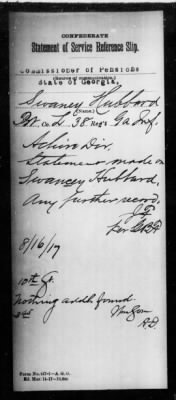 CONFEDERATE
Statement of Service Reference Slip.
Commissioner of Pensions
(Source of communication.)
State Of Georgia.
Swaney Hubbard
(Name.)
Co. L. 38 Reg't Ga Inf.
Statement made on
Swancey Hubbard,
Any further record.
Per
8/16/17
10th
nothing addl. found
Form No. 417-1—A. G. O.